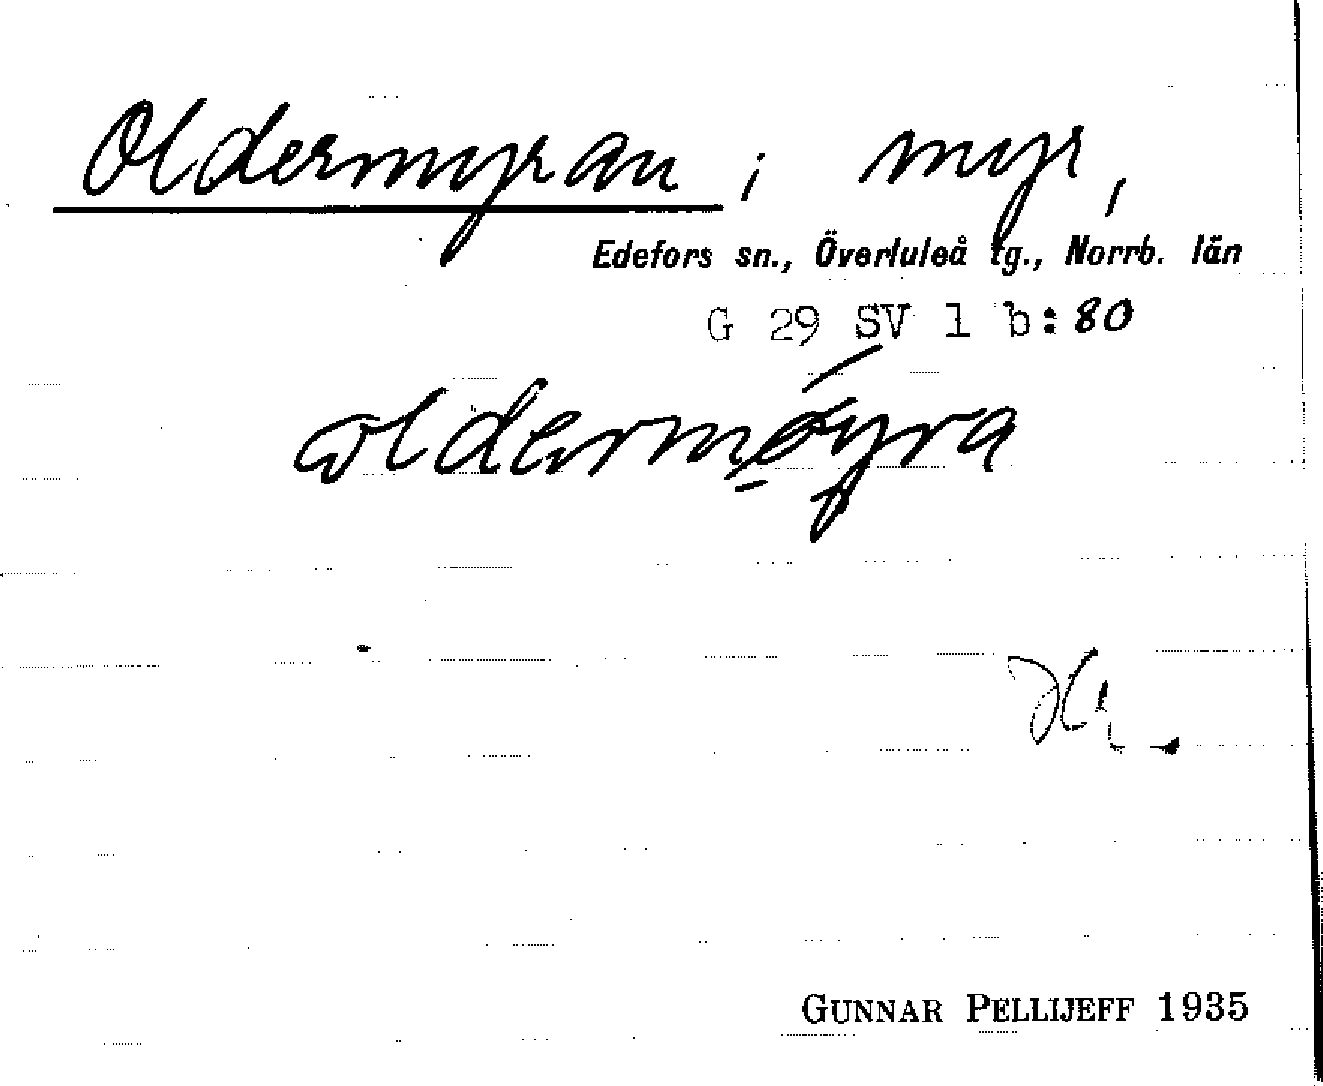 Oldermyran ; myr,
Edefors sn., Överluleå tg., Norrb. län
G 29 SV 1 b:80
GUNNAR PELLIJEFF 1935